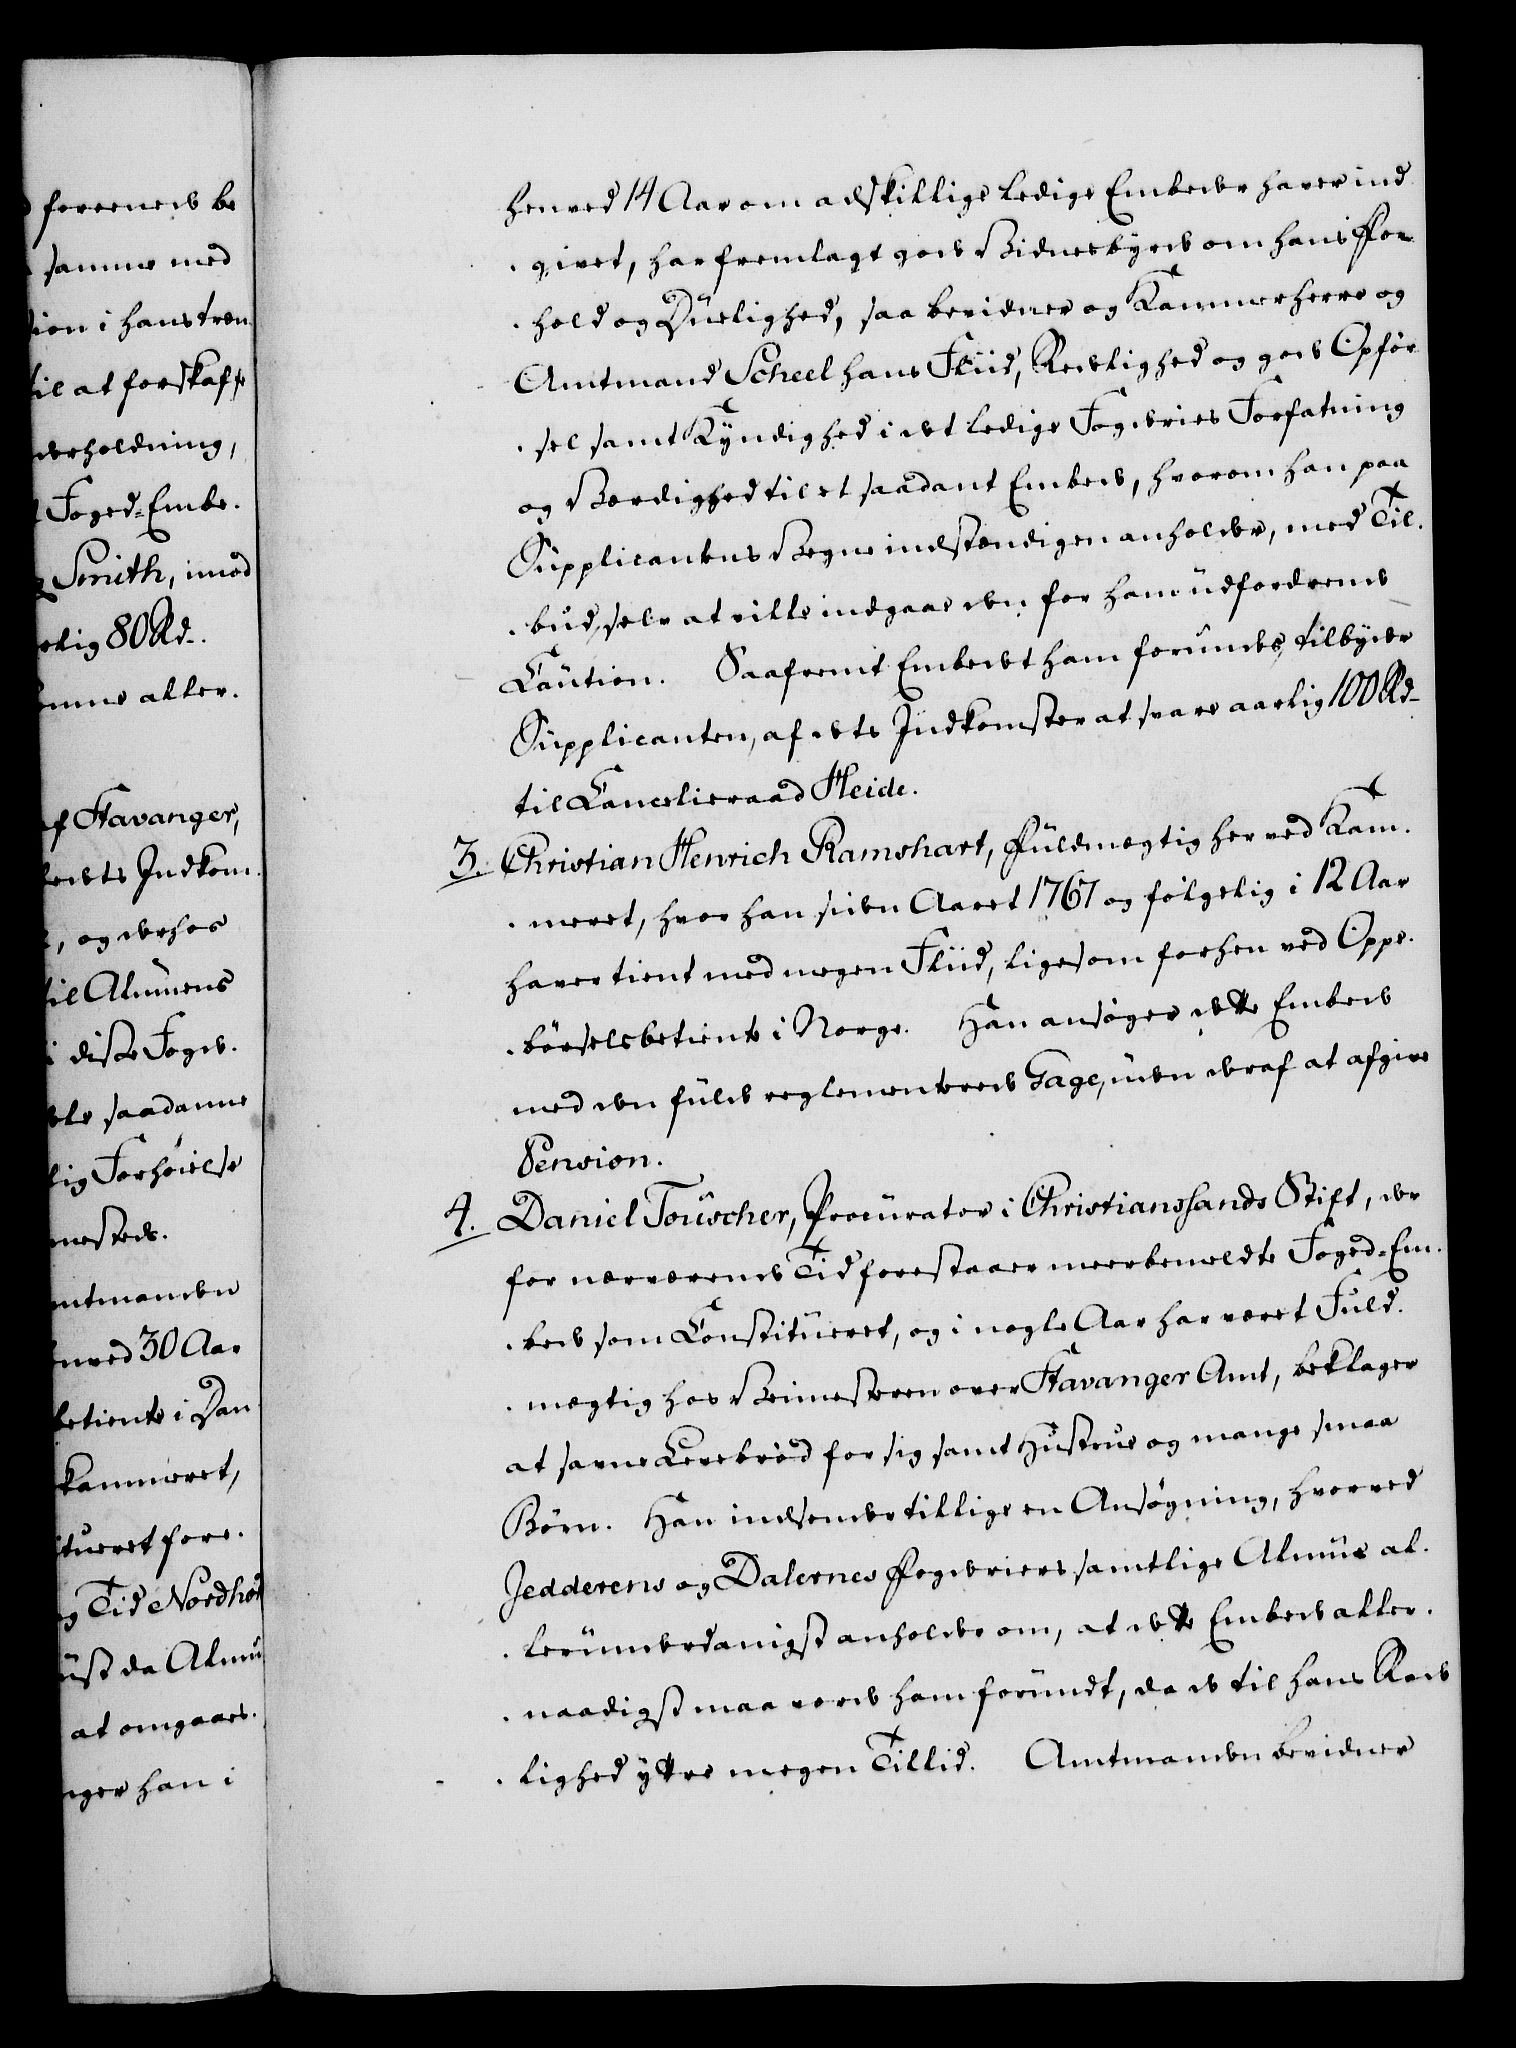 foreenede be
samme med
sion i hans tren
til at forskaffe
derholdning,
Foged-Embe.
Smith, imod
rlig 80 Rd.
omme aller.
af Stavanger,
bedets Indkom.
, og derhos
til Almuens
i disse Foge.
dele saadanne
lig Forhøielse
nesteds.
mtmanden
nved 30 Aar
betiente i Dan
kammeret,
tueret fore.
og Tid Nordhor
üst da Almu
at omgaaes.
nger han i
henved 14 Aar om adskillige ledige Embeder haver ind
givet, har fremlagt gode Vidnesbyrd om hans For
hold og Duelighed, saa bevidner og Kammerherre og
Amtmand Scheel hans Fliid, Redelighed og gode Opfør
sel samt Kyndighed i det ledige Fogderies Forfatning
og Værdighed til et saadant Embede, hvorom han paa
Supplicantens Vegne indstændigen anholder, med Til.
bud, selv at ville indgaae den for ham udfordrende
Caution. Saafremt Embedet ham forundes, tilbyder
Supplicanten, af dets Indkomster at svare aarlig 100 Rd
til Cancelieraad Heide.
3. Christian Henrich Ramshart, Fuldmægtig her ved Kam.
meret, hvor han siden Aaret 1767 og følgelig i 12 Aar
haver tient med megen Fliid, ligesom forhen ved Oppe.
børselsbetiente i Norge. Han ansøger dette Embede
med den fulde reglementerede Gage, uden deraf at afgive
Pension.
4. Daniel Touscher, Procurator i Christianssands Stift, der
for nærværende Tid forestaaer meerbemeldte Foged-Em.
bede som Constitueret, og i nogle Aar har været Fuld.
mægtig hos Veimesteren over Stavanger Amt, beklager
at savne Levebrød for sig samt Hustrue og mange smaa
Børn. Han indsender tillige en Ansøgning, hvorved
Jedderens og Dalernes Fogderiers samtlige Almue al.
lerunderdanigst anholder om, at dette Embede aller.
naadigst maa vorde ham forundt, da de til hans Rede
lighed yttre megen Tillid. Amtmanden bevidner